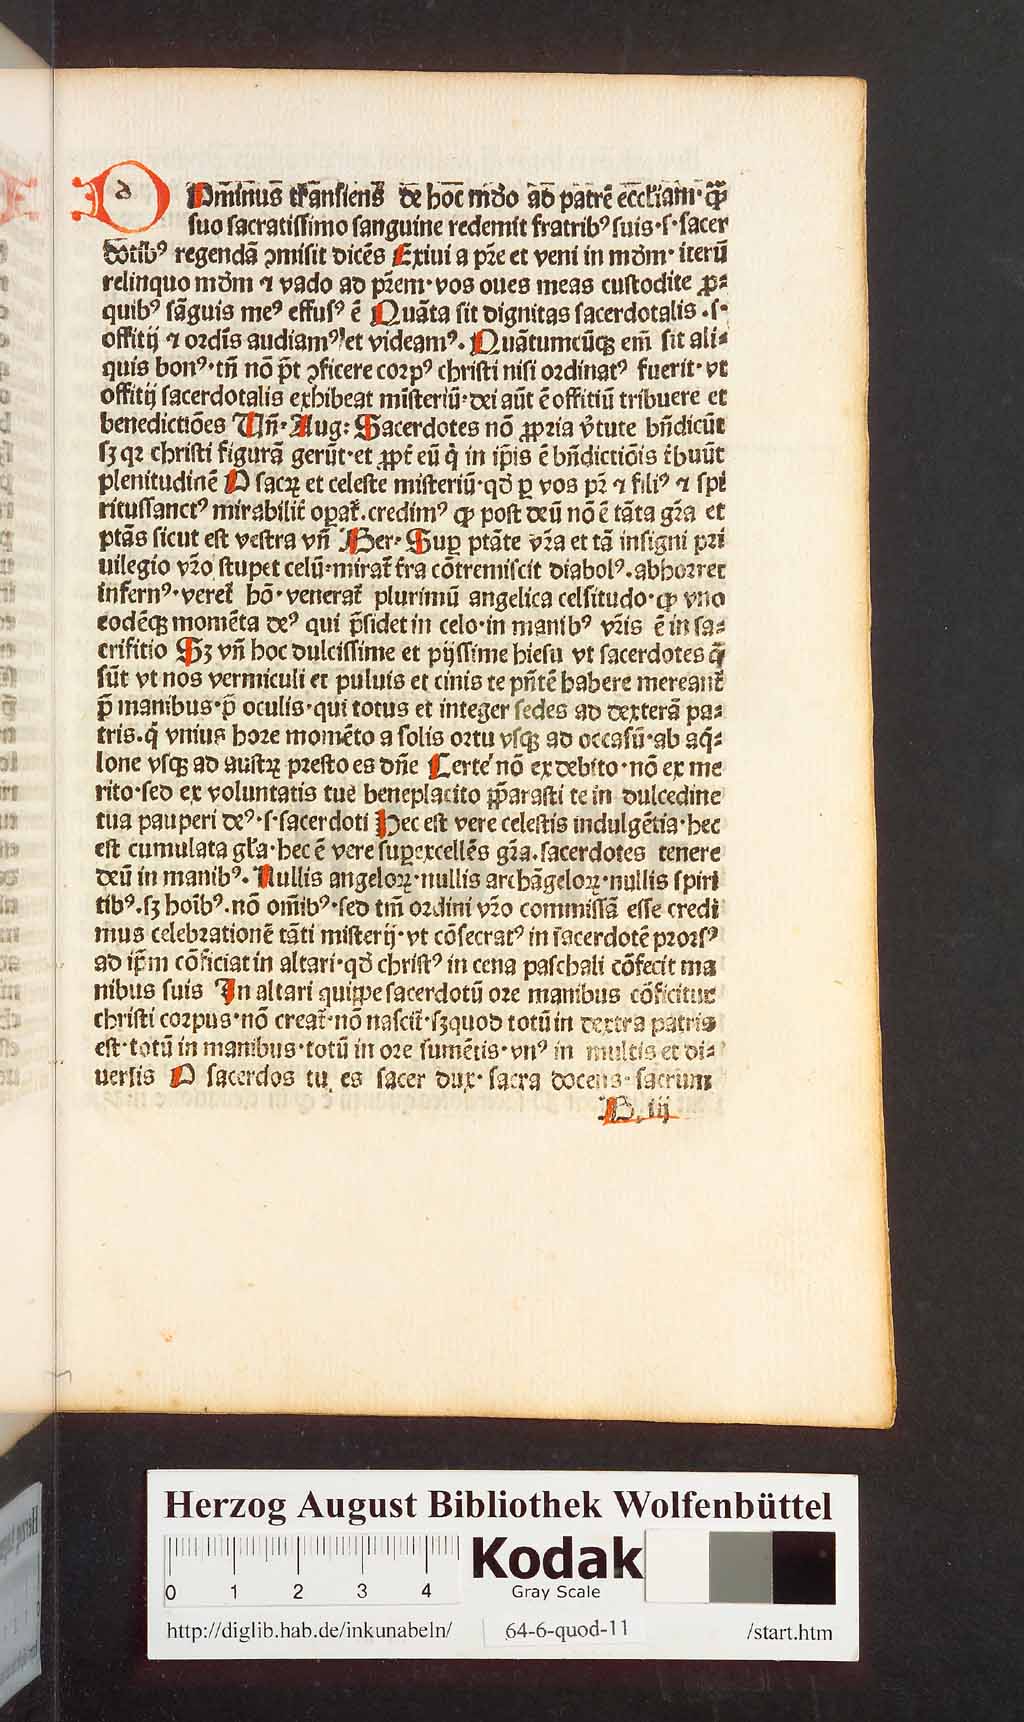 DOm̄inus trāsiens̄ de hoc mūdo ad patrē eccl̄iam·quā
suo sacratissimo sanguine redemit fratribꝰ suis·s·sacer
dotibꝰ regendā ꝯmisit dicēs Exiui a pr̄e et veni in mūdm̄·iterū
relinquo mūdm̄ ⁊ vado ad pr̄em·vos oues meas custodite p̱⸗
quibꝰ sāguis meꝰ effusꝰ ē Quāta sit dignitas sacerdotalis·s·
offitij ⁊ ordīs audiamꝰ et videamꝰ. Quātumcūqꝫ em̄ sit ali⸗
quis bonꝰ·tn̄ nō pōt ꝯficere corpꝰ christi nisi ordinatꝰ fuerit·vt
offitij sacerdotalis exhibeat mīsteriū·dei aūt ē offitiū tribuere et
benedictiōes Un̄·Aug: Sacerdotes nō ꝓpria v̄tute bn̄dicūt
sꝫ qꝛ christi figurā gerūt·et ꝓpt̄ eū qͥ in ip̄is ē bn̄dictiōis t̄buūt
plenitudinē O sacꝝ et celeste misteriū·qd̄ ꝑ vos pr̄ ⁊ filiꝰ ⁊ spi
ritussanctꝰ mirabilit̄ oꝑat̄.credimꝰ ꝙ post deū nō ē tāta gr̄a et
ptās sicut est vestra vn̄ Ber·Suꝑ ptāte vr̄a et tā insigni pri
uilegio vr̄o stupet celū·mirat̄ t̄ra cōtremiscit diabolꝰ.abhorret
infernꝰ·veret̄ hō·venerat̄ plurimū angelica celsitudo·ꝙ vno
eodēqꝫ momēta deꝰ qui p̄sidet in celo·in manibꝰ vr̄is ē in sa⸗
crifitio Sꝫ vn̄ hoc dulcissime et pijssime hiesu vt sacerdotes qͥ
sūt vt nos vermiculi et puluis et cinis te pn̄tē habere mereant̄
p̄ manibus·p̄ oculis·qui totus et integer sedes ad dexterā pa⸗
tris.qͥ vnius hore momēto a solis ortu vsqꝫ ad occasū·ab aqͥ⸗
lone vsqꝫ ad austꝝ presto es dn̄e Certe nō ex debito·nō ex me
rito·sed ex voluntatis tue beneplacito p̄parasti te in dulcedine
tua pauperi deꝰ·s·sacerdoti Hec est vere celestis indulgētia·hec
est cumulata gl̄a·hec ē vere suꝑexcellēs gr̄a.sacerdotes tenere
deū in manibꝰ. Nullis angeloꝝ·nullis archāgeloꝝ·nullis spiri
tibꝰ.sꝫ hoībꝰ.nō om̄ibꝰ·sed tm̄ ordini vr̄o commissā esse credi
mus celebrationē tāti misterij·vt cōsecratꝰ in sacerdotē prorsꝰ
ad ip̄m cōficiat in altari·qd̄ christꝰ in cena paschali cōfecit ma
nibus suis In altari quippe sacerdotū ore manibus cōficitur
christi corpus·nō creat̄·nō nascit̄·sꝫ quod totū in dextra patris
est·totū in manibus·totū in ore sumētis·vnꝰ in multis et di⸗
uersis O sacerdos tu es sacer dux·sacra docens·sacrum
B. iij
Herzog August Bibliothek Wolfenbüttel
0 1 2 3 4
Kodak
Gray Scale
http://diglib.hab.de/inkunabeln/ 64-6-quod-11 /start.htm